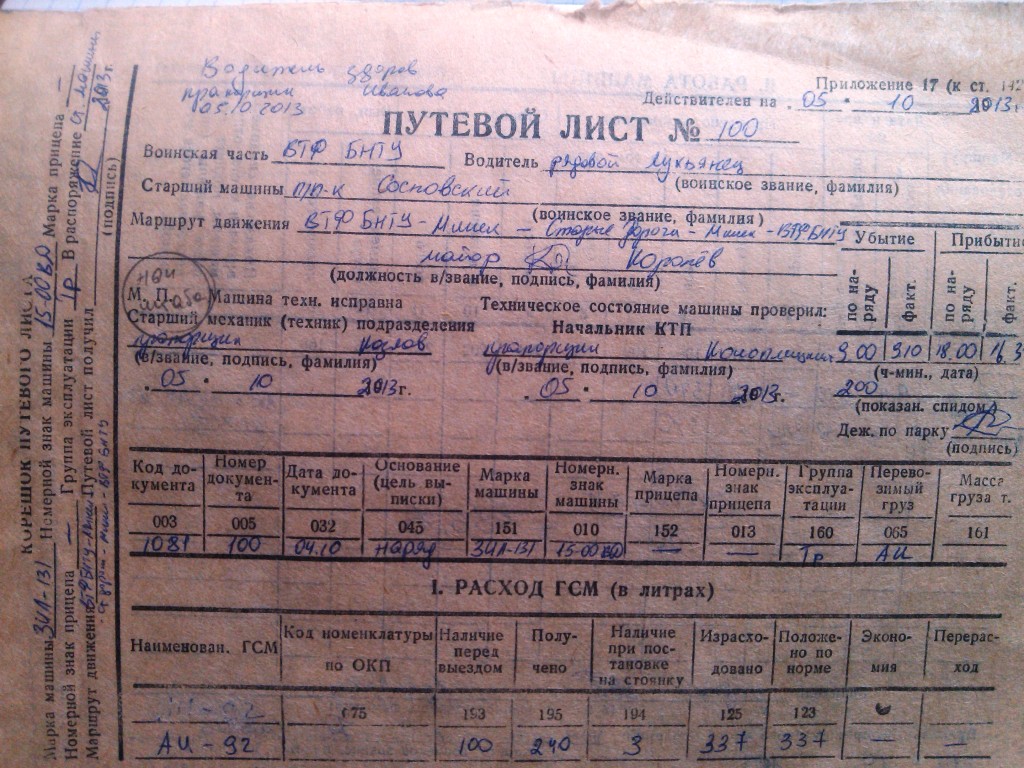 Водитель здоров
прапорщик Иванова
05.10 2013
Приложение 17 (к ст. 142
Действителен на 05. 10 2013г
ПУТЕВОЙ ЛИСТ № 100
Воинская часть ВТФ БНТУ Водитель рядовой Лукьянец
(воинское звание, фамилия)
Старший машины п/п-к Сосновский
(воинское звание, фамилия)
Маршрут движения ВТФ БНТУ - Минск - Старые Дороги - Минск - ВТФ БНТУ
майор Королёв
(должность в/звание, подпись, фамилия)
Убытие Прибыти
по наряду факт. по наряду факт.
М. П. Машина техн. исправна Техническое состояние машины проверил:
Старший механик (техник) подразделения Начальник КТП
прапорщик Козлов прапорщик 9.00 910 18.00 16.3
(в/звание, подпись, фамилия) (в/звание, подпись, фамилия) (ч-мин., дата)
05. 10 2013г. 05. 10 2013г. 200
(показан. спидом.)
Деж. по парку
(подпись)
Код документа Номер документа Дата документа Основание (цель выписки) Марка машины Номерн. знак машины Марка прицепа Номерн. знак прицепа Группа эксплуатации Перевозимый груз Масса груза т.
003 005 032 045 151 010 152 013 160 065 161
1081 100 04.10 наряд ЗИЛ-131 15-00 КО — — Тр АИ
I. РАСХОД ГСМ (в литрах)
Наименован. ГСМ Код номенклатуры по ОКП Наличие перед выездом Получено Наличие при постановке на стоянку Израсходовано Положено по норме Экономия Перерасход
675 193 195 194 125 123
АИ - 92 100 240 3 337 337 — —
КОРЕШОК ПУТЕВОГО ЛИСТА
Марка машины ЗИЛ-131 Номерной знак машины 15-00 КО Марка прицепа —
Номерной знак прицепа — Группа эксплуатации Тр В распоряжение 2013г.
Маршрут движения ВТФ БНТУ - Минск Путевой лист получил
(подпись)